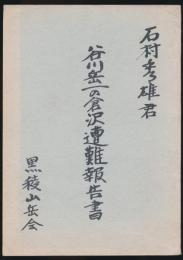 石村秀雄君
谷川岳一の倉沢遭難報告書
黒稜山岳会